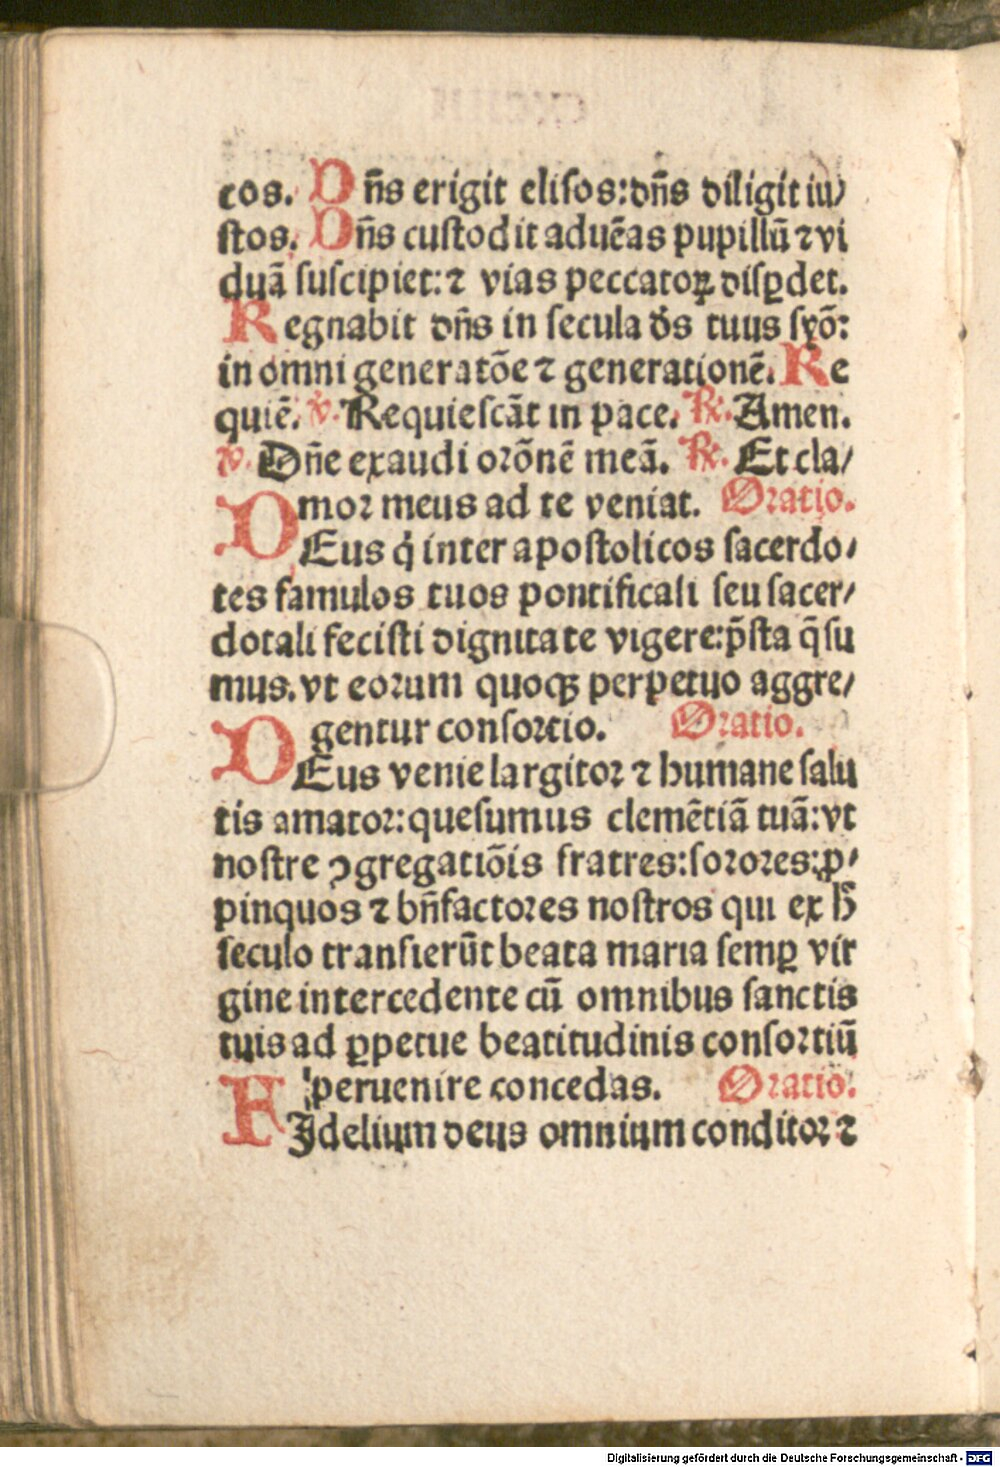 cos. Dn̄s erigit elisos: dn̄s diligit iu/
stos. Dn̄s custodit aduēas pupillū ⁊ vi
duā suscipiet: ⁊ vias peccatoꝝ disꝑdet.
Regnabit dn̄s in secula d̄s tuus syō:
in omni generatōe ⁊ generationē. Re
quiē. ℣. Requiescāt in pace. ℟. Amen.
℣. Dn̄e exaudi orōnē meā. ℟. Et cla/
mor meus ad te veniat. Oratio.
DEus q̇ inter apostolicos sacerdo/
tes famulos tuos pontificali seu sacer/
dotali fecisti dignitate vigere: p̄sta q̄su
mus. vt eorum quoqꝫ perpetuo aggre/
gentur consortio. Oratio.
DEus venie largitor ⁊ humane salu
tis amator: quesumus clemētiā tuā: vt
nostre ꝯgregatiōis fratres: sorores: ꝓ/
pinquos ⁊ bn̄factores nostros qui ex h̄
seculo transierūt beata maria semꝑ vir
gine intercedente cū omnibus sanctis
tuis ad ꝑpetue beatitudinis consortiū
peruenire concedas. Oratio.
FIdelium deus omnium conditor ⁊
Digitalisierung gefördert durch die Deutsche Forschungsgemeinschaft - DFG